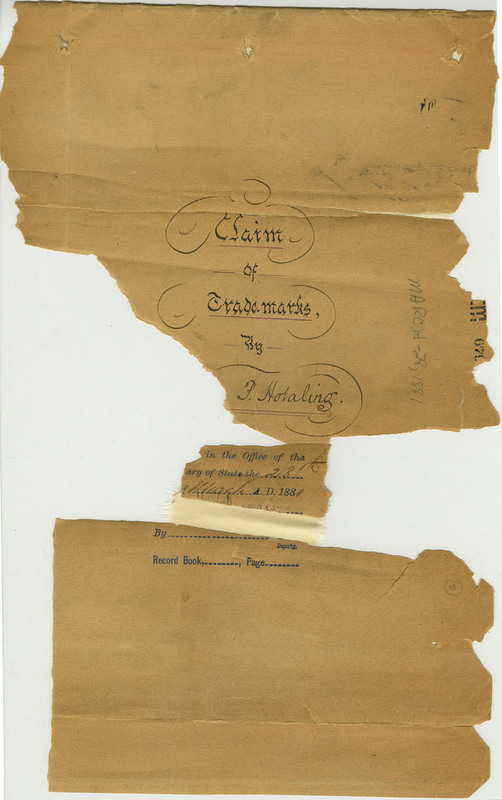 Claim
of
Trade-marks,
By
P. Hotaling.
MARCH 28, 1881
in the Office of the
ary of State the 28
March A. D. 1881
By
Deputy.
Record Book, , Page